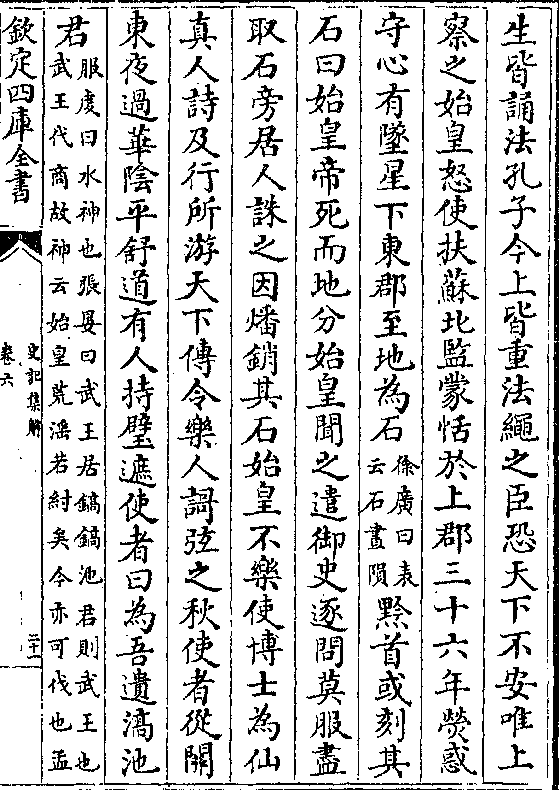 生皆誦法孔子今上皆重法繩之臣恐天下不安唯上
察之始皇怒使扶蘇北監蒙恬於上郡三十六年熒惑
守心有墜星下東郡至地為石
徐廣曰表
云石晝隕
黔首或刻其
石曰始皇帝死而地分始皇聞之遣御史逐問莫服盡
取石旁居人誅之因燔銷其石始皇不樂使博士為仙
真人詩及行所游天下傳令樂人謌弦之秋使者從關
東夜過華陰平舒道有人持璧遮使者曰為吾遺滈池
君
服虔曰水神也張晏曰武王居鎬鎬池君則武王也
武王代商故神云始皇荒滛若紂矣今亦可伐也孟
欽定四庫全書
史記集解
卷六
二十一